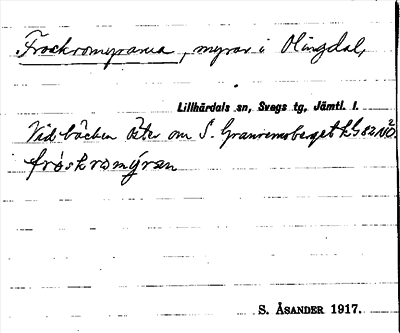 Froskromyrarna, myrar i Olingdal,
Lillhärdals sn, Svegs tg, Jämtl. l.
Vid bäcken öster om S. Granremsberget
fröskromýran
S. ÅSANDER 1917.